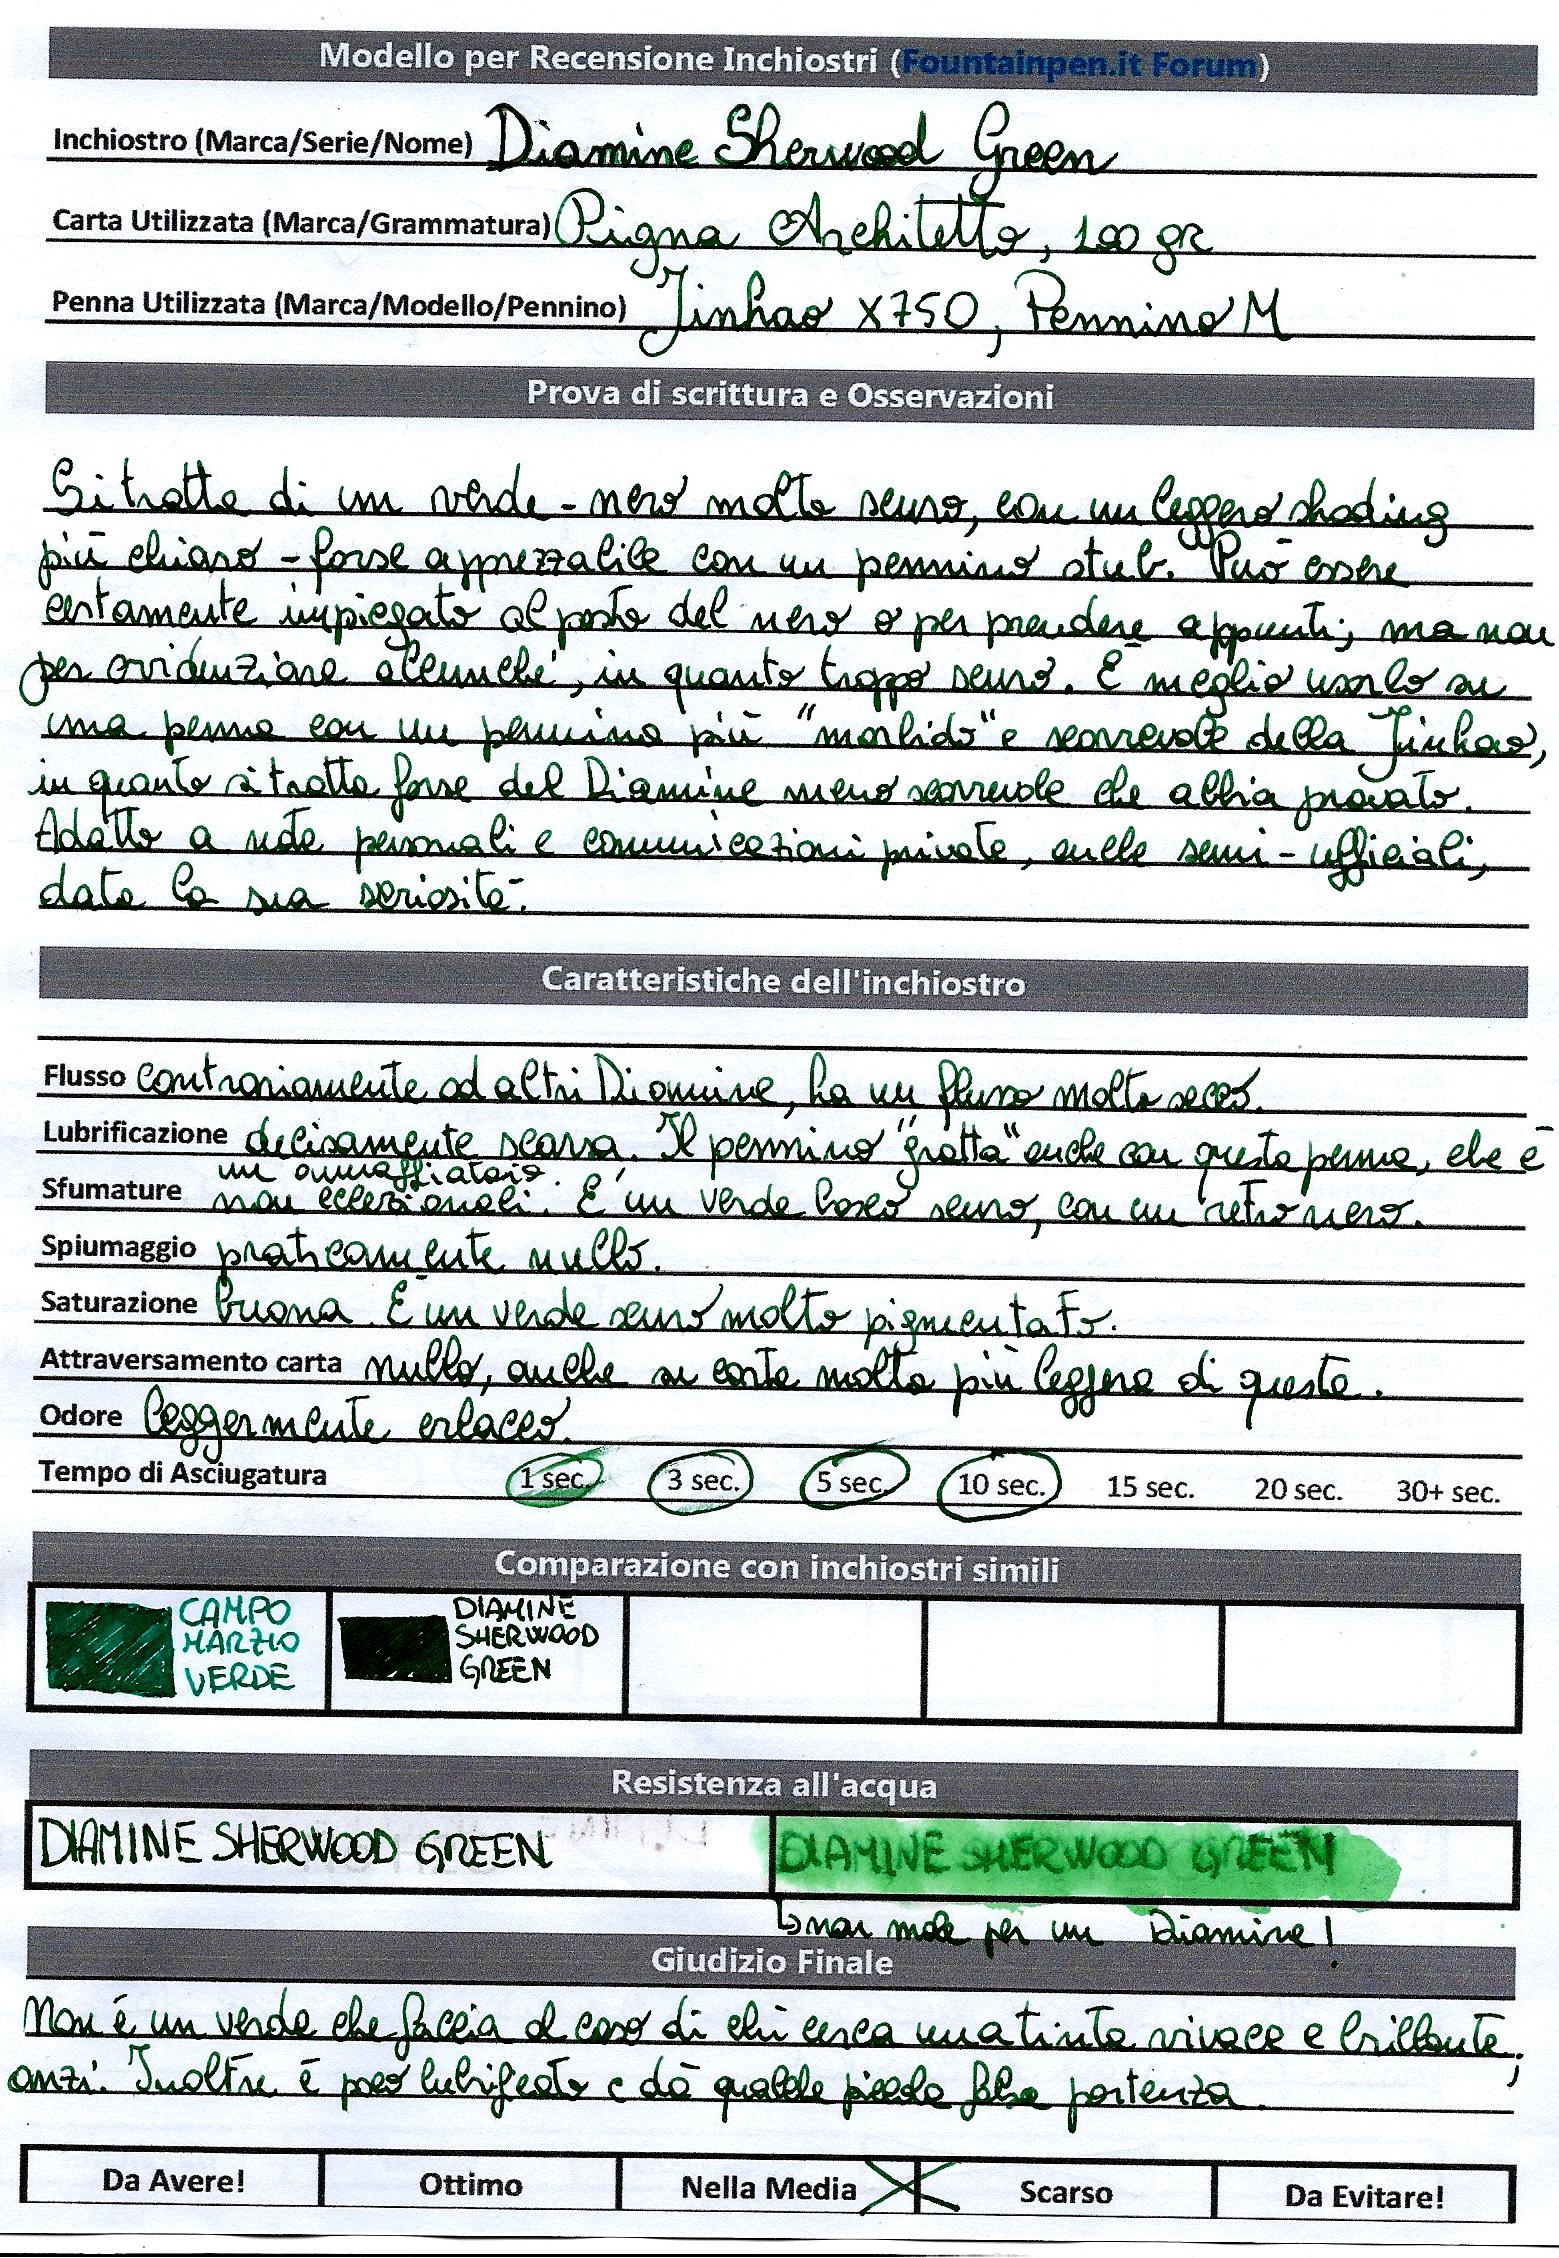 Modello per Recensione Inchiostri (Fountainpen.it Forum)
Inchiostro (Marca/Serie/Nome) Diamine Sherwood Green
Carta Utilizzata (Marca/Grammatura) Pigna Architetto, 100 gr
Penna Utilizzata (Marca/Modello/Pennino) Jinhao X750, Pennino M
Prova di scrittura e Osservazioni
Si tratta di un verde-nero molto scuro, con un leggero shading
più chiaro - forse apprezzabile con un pennino stub. Può essere
certamente impiegato al posto del nero o per prendere appunti; ma non
per evidenziare alcunché, in quanto troppo scuro. È meglio usarlo su
una penna con un pennino più "morbido" e scorrevole della Jinhao,
in quanto si tratta forse del Diamine meno scorrevole che abbia provato.
Adatto a note personali e comunicazioni private, anche semi-ufficiali,
data la sua seriosità.
Caratteristiche dell'inchiostro
Flusso contrariamente ad altri Diamine, ha un flusso molto secco.
Lubrificazione decisamente scarsa. Il pennino "gratta" anche con questa penna, che è
un annaffiatoio.
Sfumature non eccezionali. È un verde bosco scuro, con un retro nero.
Spiumaggio praticamente nullo.
Saturazione buona. È un verde scuro molto pigmentato.
Attraversamento carta nullo, anche su carte molto più leggere di questa.
Odore leggermente erbaceo.
Tempo di Asciugatura 1 sec. 3 sec. 5 sec. 10 sec. 15 sec. 20 sec. 30+ sec.
Comparazione con inchiostri simili
CAMPO
MARZIO
VERDE
DIAMINE
SHERWOOD
GREEN
Resistenza all'acqua
DIAMINE SHERWOOD GREEN
DIAMINE SHERWOOD GREEN
↳ non male per un Diamine!
Giudizio Finale
Non è un verde che faccia al caso di chi cerca una tinta vivace e brillante,
anzi. Inoltre è poco lubrificato e dà qualche piccola falsa partenza.
Da Avere! Ottimo Nella Media Scarso Da Evitare!